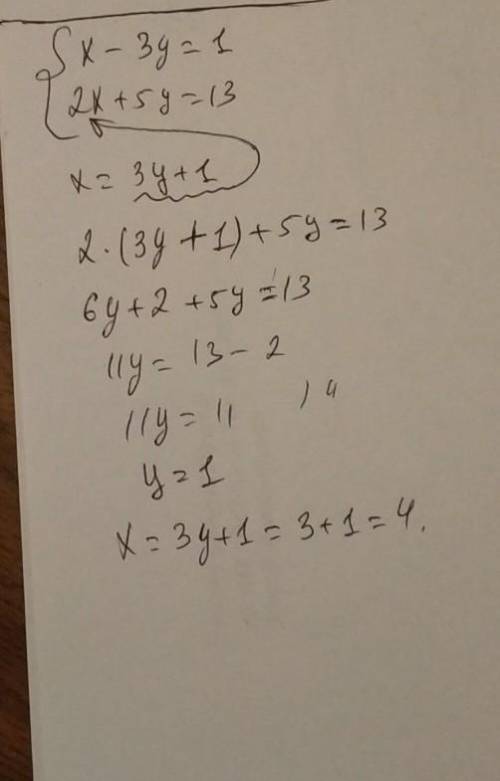 x - 3y = 1
2x + 5y = 13
x = 3y + 1
2 · (3y + 1) + 5y = 13
6y + 2 + 5y = 13
11y = 13 - 2
11y = 11
y = 1
x = 3y + 1 = 3 + 1 = 4.